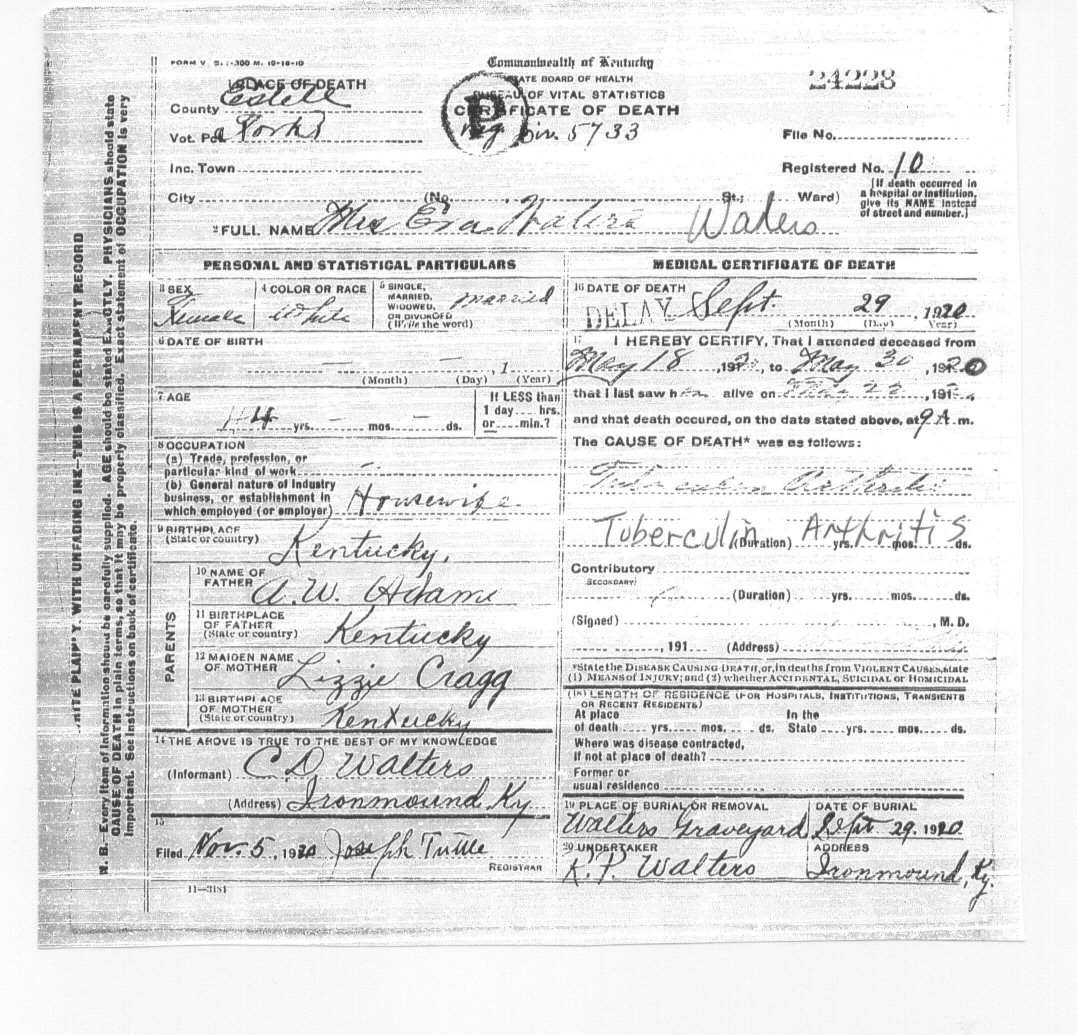 FORM V. S. 1-300 M. 10-18-10
Commonwealth of Kentucky
STATE BOARD OF HEALTH
BUREAU OF VITAL STATISTICS
CERTIFICATE OF DEATH
24228
1 PLACE OF DEATH
County Estell
Vot. Pct Forks
Reg. Dis. 5733
File No.
Inc. Town
Registered No. 10
City (No. St.; Ward)
[If death occurred in
a hospital or institution,
give its NAME instead
of street and number.]
2 FULL NAME Mrs Eva Walters Waters
PERSONAL AND STATISTICAL PARTICULARS
3 SEX
Female
4 COLOR OR RACE
White
5 SINGLE,
MARRIED,
WIDOWED,
OR DIVORCED
(Write the word)
married
6 DATE OF BIRTH
, 1
(Month) (Day) (Year)
7 AGE
44 yrs. — mos. — ds.
If LESS than
1 day ... hrs.
or ... min.?
8 OCCUPATION
(a) Trade, profession, or
particular kind of work
(b) General nature of industry
business, or establishment in
which employed (or employer) Housewife
9 BIRTHPLACE
(State or country) Kentucky,
PARENTS
10 NAME OF
FATHER A.W. Adams
11 BIRTHPLACE
OF FATHER
(State or country) Kentucky
12 MAIDEN NAME
OF MOTHER Lizzie Cragg
13 BIRTHPLACE
OF MOTHER
(State or country) Kentucky
14 THE ABOVE IS TRUE TO THE BEST OF MY KNOWLEDGE
(Informant) C D Walters
(Address) Ironmound Ky
15
Filed Nov. 5, 1920 Joseph Tuttle
REGISTRAR
11—3181
MEDICAL CERTIFICATE OF DEATH
16 DATE OF DEATH
DELAY Sept. 29, 1920
(Month) (Day) Year)
17 I HEREBY CERTIFY, That I attended deceased from
May 18, 192, to May 30, 1920
that I last saw h alive on , 191
and that death occured, on the date stated above, at 9 A. m.
The CAUSE OF DEATH* was as follows:
Tuberculin Arthritis
Tuberculin Arthritis
(Duration) yrs. mos. ds.
Contributory
SECONDARY
(Duration) yrs. mos. ds.
(Signed) , M. D.
, 191 (Address)
*State the DISEASE CAUSING DEATH, or, in deaths from VIOLENT CAUSES, state
(1) MEANS OF INJURY; and (2) whether ACCIDENTAL, SUICIDAL or HOMICIDAL
(18) LENGTH OF RESIDENCE (FOR HOSPITALS, INSTITUTIONS, TRANSIENTS
OR RECENT RESIDENTS)
At place In the
of death yrs. mos. ds. State yrs. mos. ds.
Where was disease contracted,
If not at place of death?
Former or
usual residence
19 PLACE OF BURIAL OR REMOVAL
Walters Graveyard
DATE OF BURIAL
Sept. 29. 1920
20 UNDERTAKER
K.P. Walters
ADDRESS
Ironmound, Ky.
WRITE PLAINLY, WITH UNFADING INK—THIS IS A PERMANENT RECORD
N. B.—Every item of information should be carefully supplied. AGE should be stated EXACTLY. PHYSICIANS should state
CAUSE OF DEATH in plain terms, so that it may be properly classified. Exact statement of OCCUPATION is very
important. See instructions on back of certificate.